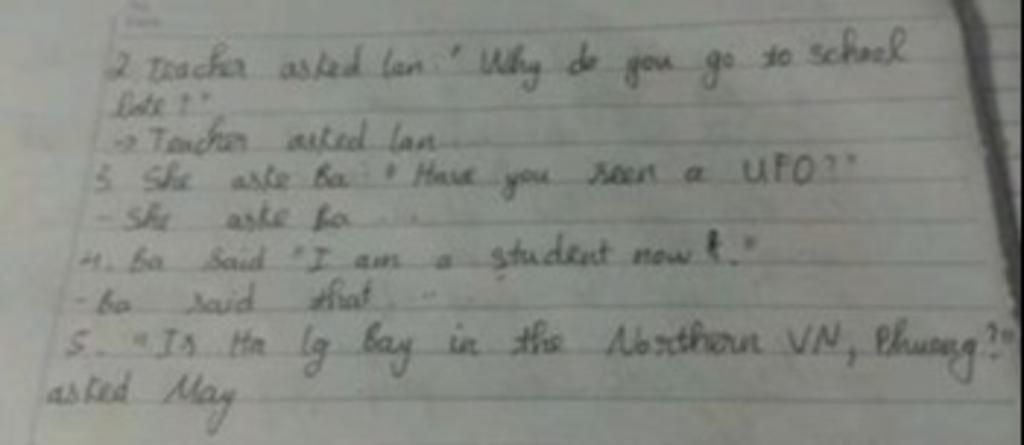 2 Teacher asked Lan: "Why do you go to school
late?"
-> Teacher asked Lan
3. She aske Ba: "Have you seen a UFO?"
- She aske Ba ...
4. Ba said "I am a student now."
- Ba said that ...
5. "Is Ha Lg Bay in the Northern VN, Phuong?"
asked May